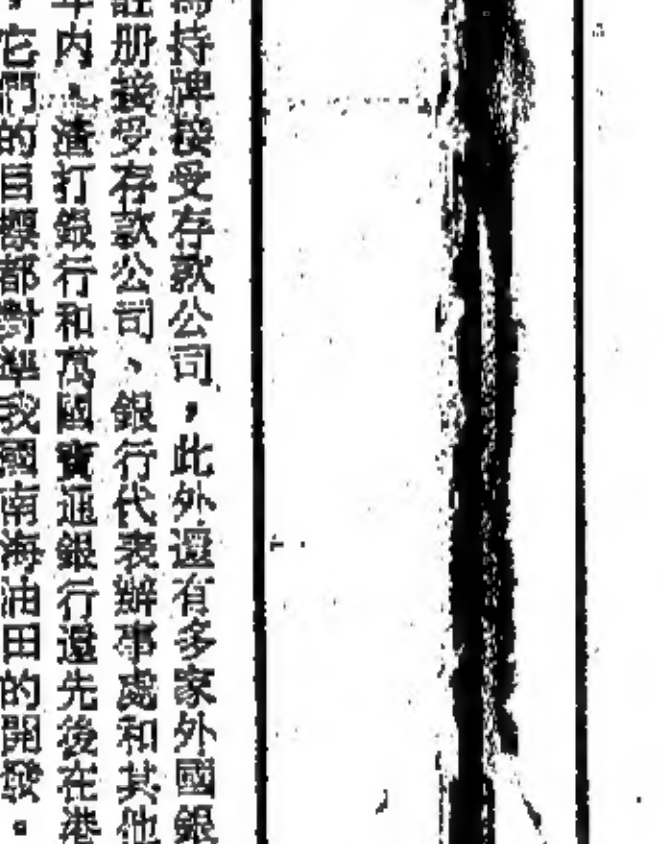 持牌接受存款公司，此外還有多家外國銀
註册接受存款公司、銀行代表辦事處和其他
年内，渣打銀行和萬國寶通銀行還先後在港
它們的目標都對準我國南海油田的開發。